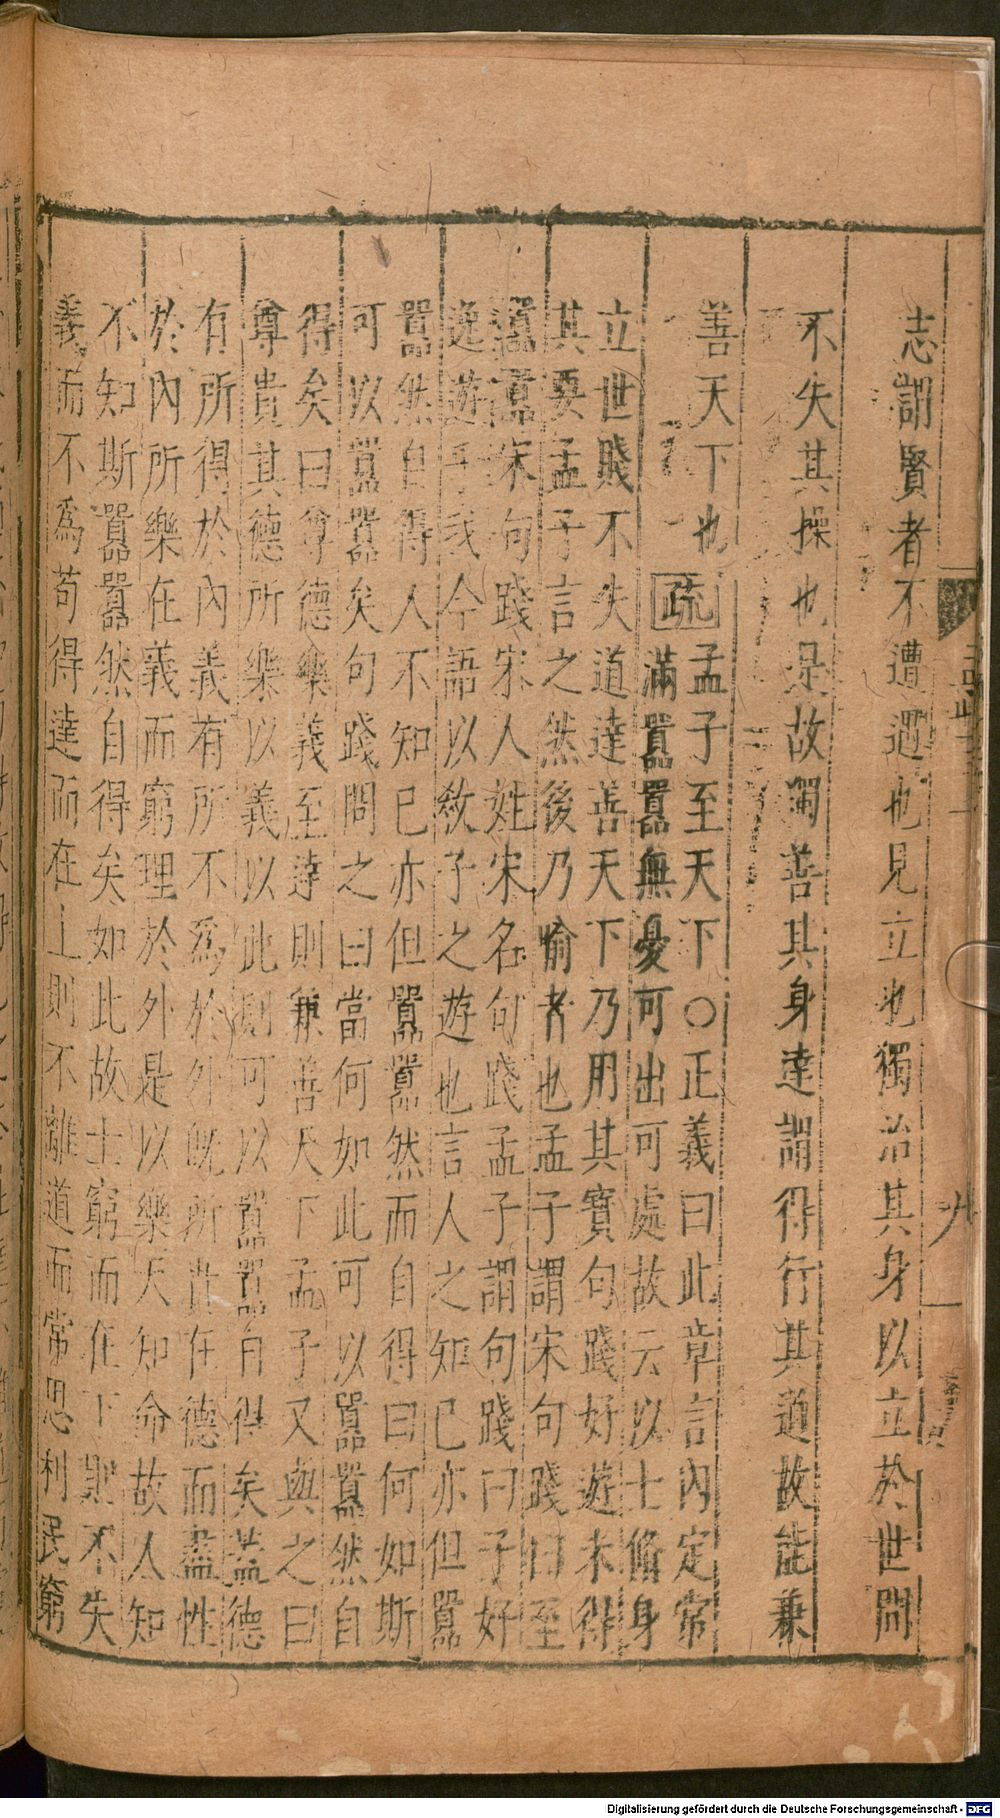 志謂賢者不遭遇也見立也獨治其身以立於世間
不失其操也是故獨善其身達謂得行其道故能兼
善天下也
疏
孟子至天下○正義曰此章言內定常
滿囂囂無憂可出可處故云以士脩身
立世賤不失道達善天下乃用其寶句踐好遊未得
其要孟子言之然後乃喻者也孟子謂宋句踐曰至
囂囂宋句踐宋人姓宋名句踐孟子謂句踐曰子好
逸遊乎我今語以敎子之遊也言人之知己亦但囂
囂然自得人不知己亦但囂囂然而自得曰何如斯
可以囂囂矣句踐問之曰當何如此可以囂囂然自
得矣曰尊德樂義至達則兼善天下孟子又與之曰
尊貴其德所樂以義以此則可以囂囂自得矣蓋德
有所得於內義有所不爲於外既所貴在德而盡性
於內所樂在義而窮理於外是以樂天知命故人知
不知斯囂囂然自得矣如此故士窮而在下則不失
義而不爲苟得達而在上則不離道而常思利民窮
九
Digitalisierung gefördert durch die Deutsche Forschungsgemeinschaft - DFG